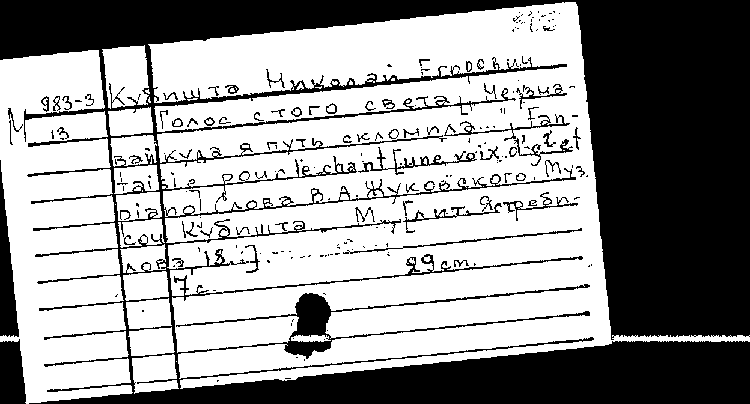 983-3 Кубишта, Николай Егорович
М 13 Голос с того света ["Не узна-
вай куда я путь склонила..."] Fan-
taisie pour le chant [une voix d' et
piano] Слова В.А. Жуковского. Муз.
соч. Кубишта. М., [лит. Ястреби-
лова, 18..]
7 с. 29 cm.